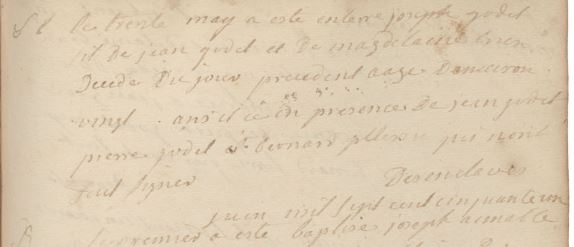 S le trente may a este enterre joseph godet
fil de jean godet et de magdelaine
Decede Du jour precedent aage Denviron
vingt ans et ce en presence De jean godet
pierre godet et bernard qui nont
seut signer Desenclaves
juin mil sept cent cinquante un
B le premier a este baptise joseph aimable